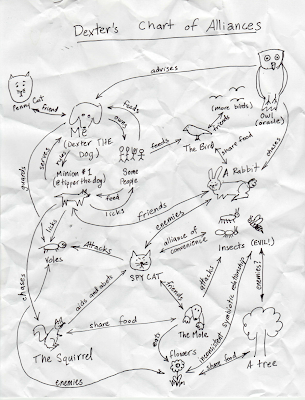 Dexter's Chart of Alliances
advises
Penny Cat
friend
feeds
owns
Me
(Dexter THE
Dog)
(more birds)
friend
Owl
(oracle)
feeds
The Bird
share food
chases
serves
guards
Minion #1
(@tipperthedog)
Some
People
Rabbit
food
licks
friends
enemies
licks
Voles
attacks
alliance of
convenience
Insects (EVIL!)
SPY CAT
attacks
enemies?
chases
aids and abets
friends
inconsistent symbiotic relationship
share food
The Mole
The Squirrel
eats
flowers
share food
A tree
enemies